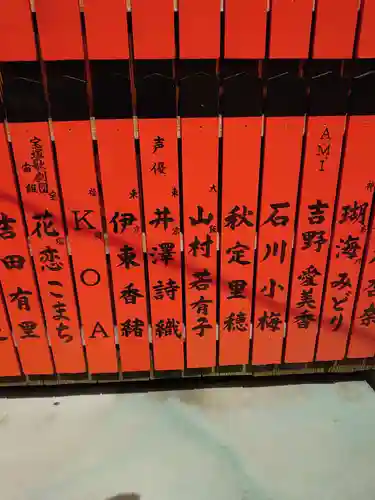 吉田有里
宝塚歌劇団
宙組
花恋こまち
K.O A
東
伊東香緒
声優
東京
井澤詩織
大阪
山村若有子
秋定里穂
石川小梅
AMI
吉野愛美香
神
瑚海みどり